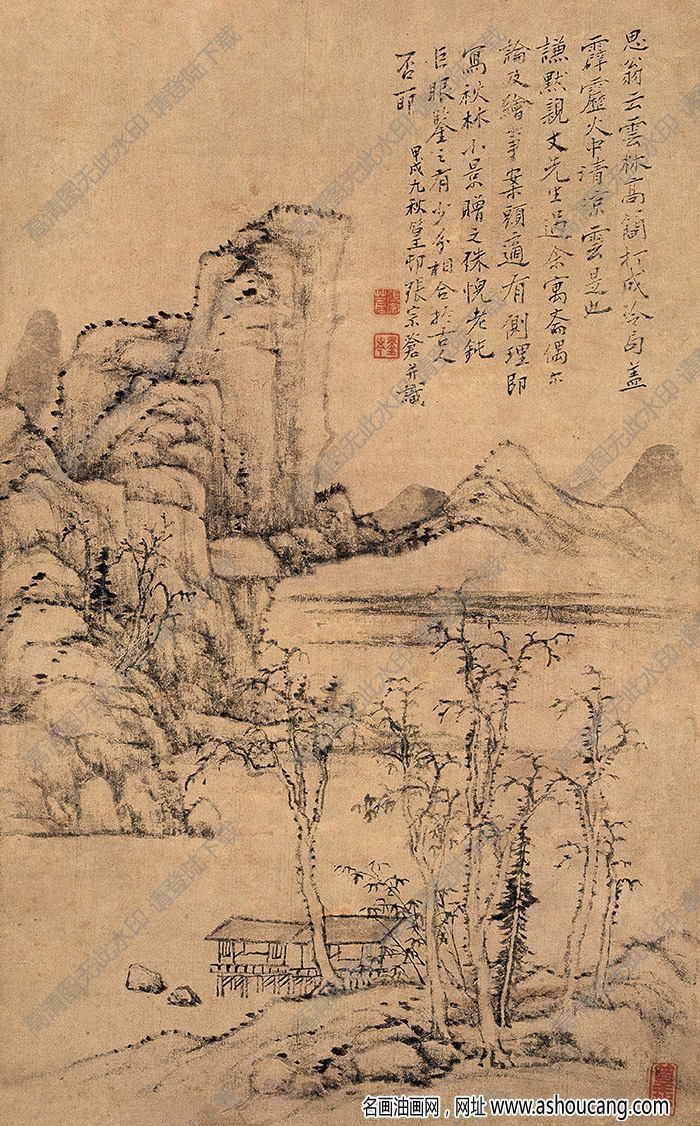 思翁云雲林高簡打成冷局蓋
霹靂火中清涼雲是也
謙默親丈先生過余寓齋偶尔
論及繪事案頭適有側理即
寫秋林小景贈之殊愧老鈍
巨眼鑒之有少分相合於古人
否耶
甲戌九秋篁邨張宗蒼并識
高清图无此水印 请登陆下载
名画油画网，网址 www.ashoucang.com